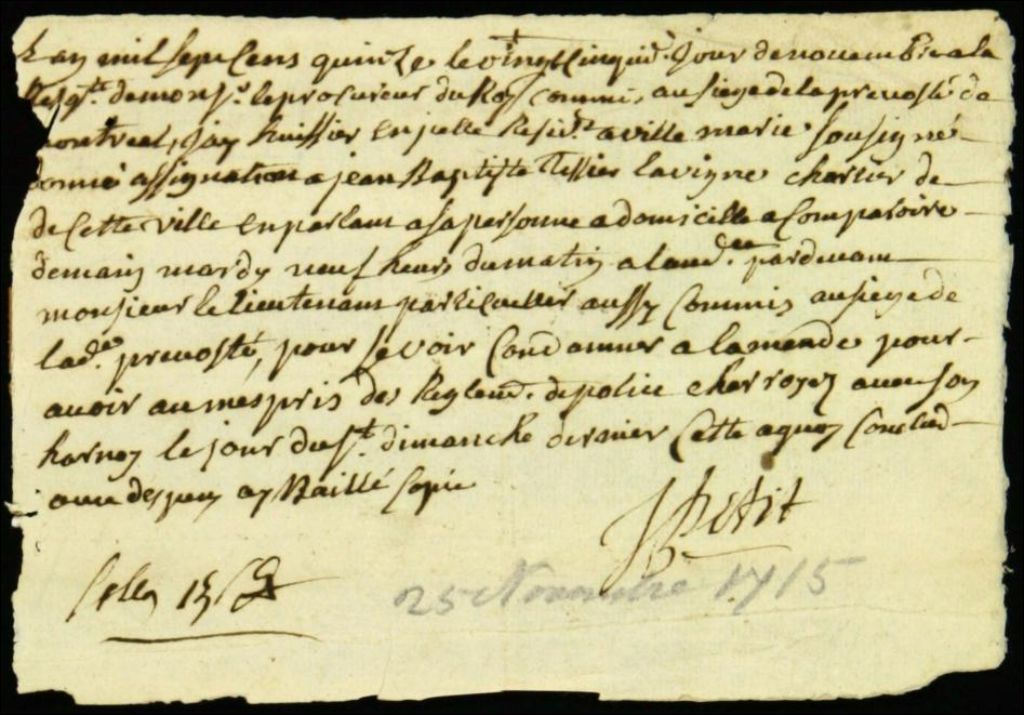 Lan mil sept Cens quinze le vingt Cinquie. Jour de nouembre a la
Resqte. de monsr. le procureur du Roy commis au siege de la preuosté de
montreal, Jay huissier en jcelle Residt. a ville marie sousigné
donné assignation a jean Baptiste Tessier lavigne chartier de
de Cette ville en parlant a sa personne a domicille a Comparoire
demain mardy neuf heurs du matin a laudce. pardeuant
monsieur le lieutenant particuller aussy Commis au siege de
lade. preuosté, pour se voir Condamner a lamende pour
auoir au mespris des Reglemt. de police charroyez auec son
harnoy le jour du st. dimanche dernier Cette a quoy Conclud
auec despens ay Baillé Copie
JPetit
25 Novembre 1715